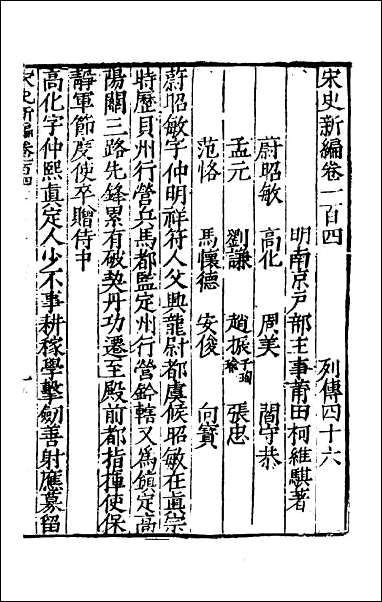 宋史新編卷一百四　列傳四十六
明南京戶部主事莆田柯維騏著
蔚昭敏　高化　周美　閻守恭
孟元　劉謙　趙振子珣　張忠
范恪　馬懷德　安俊　向寳
蔚昭敏字仲明祥符人父興龍尉都虞候昭敏在真宗
時歷貝州行營兵馬都監定州行營鈐轄又為鎮定高
陽關三路先鋒累有破契丹功遷至殿前都指揮使保
靜軍節度使卒贈侍中
高化字仲熙真定人少不事耕稼學擊劒善射應募留
宋史新編卷一百四